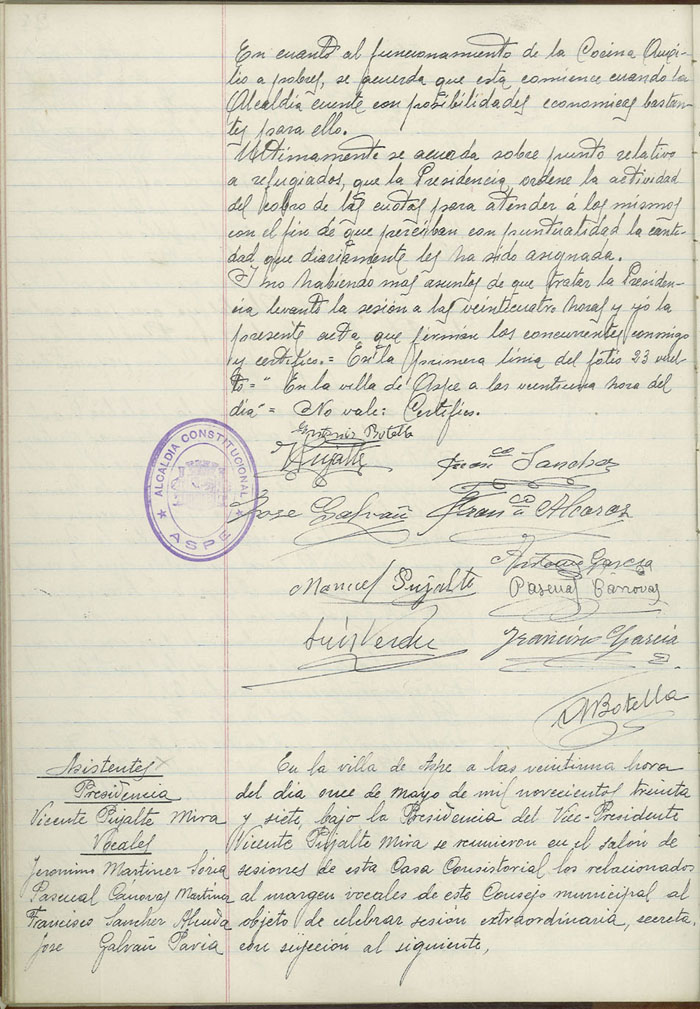 En cuanto al funcionamiento de la Cocina Auxi-
lio a pobres, se acuerda que esta comience cuando la
Alcaldia cuente con posibilidades economicas bastan-
tes para ello.
Ultimamente se acuerda sobre punto relativo
a refugiados, que la Presidencia, ordene la actividad
del cobro de las cuotas para atender á los mismos
con el fin de que perciban con puntualidad la canti-
dad que diariamente les ha sido asignada.
Y no habiendo mas asuntos de que tratar la Presiden-
cia levantó la sesión a las veinticuatro horas y yo la
presente acta que firman los concurrentes conmigo
y certifico.= En la primera linia del folio 23 vuel-
to = " En la villa de Aspe a las veintiuna hora del
dia" = No vale: Certifico.
Antonio Botella
V Pujalte
Franco Sanchez
ALCALDIA CONSTITUCIONAL
★ ASPE ★
Jose Galvañ
Franco Alcaraz
Antonio García
Manuel Pujalte
Pascual Cánovas
Luis Verdu
Francisco García
A Botella
Asistentes
Presidencia
Vicente Pujalte Mira
Vocales
Jeronimo Martinez Soria
Pascual Cánovas Martinez
Francisco Sanchez
Jose Galvañ Pavia
En la villa de Aspe a las veintiuna hora
del dia once de mayo de mil novecientos treinta
y siete, bajo la Presidencia del Vice-Presidente
Vicente Pujalte Mira se reunieron en el salón de
sesiones de esta Casa Consistorial los relacionados
al margen vocales de este Consejo municipal al
objeto de celebrar sesión extraordinaria, secreta.
con sujecion al siguiente,